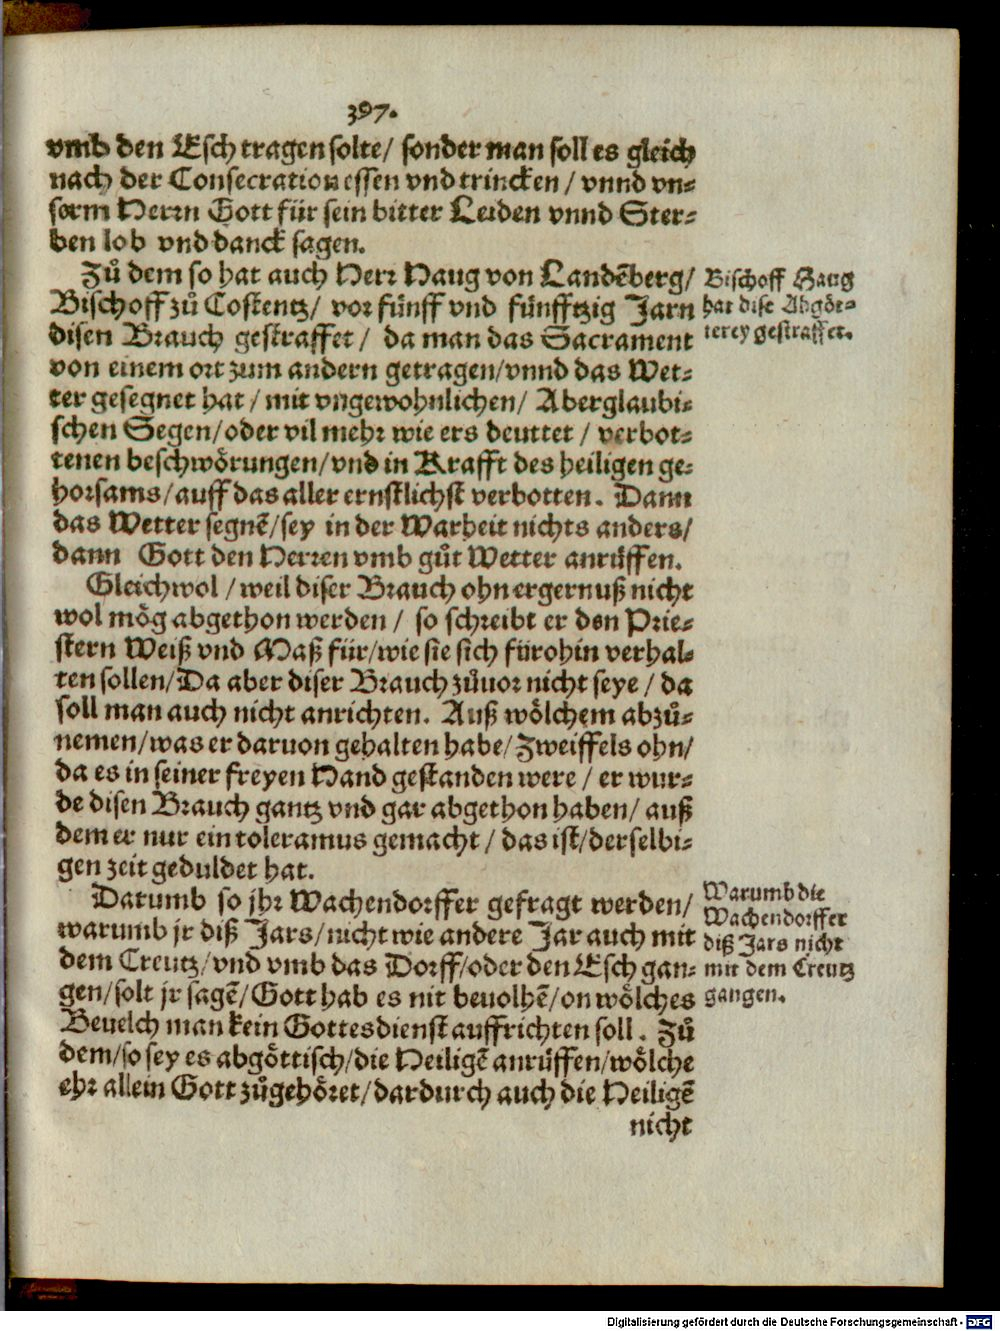 397.
vmb den Esch tragen solte/ sonder man soll es gleich
nach der Consecration essen vnd trincken / vnnd vn⸗
serm Herrn Gott für sein bitter Leiden vnnd Ster⸗
ben lob vnd danck sagen.
Zů dem so hat auch Herr Haug von Landẽberg/
Bischoff zů Costentz/ vor fünff vnd fünfftzig Jarn
disen Brauch gestraffet / da man das Sacrament
von einem ort zum andern getragen/vnnd das Wet⸗
ter gesegnet hat / mit vngewohnlichen/ Aberglaubi⸗
schen Segen/oder vil mehr wie ers deuttet / verbot⸗
tenen beschwörungen/vnd in Krafft des heiligen ge⸗
horsams/auff das aller ernstlichst verbotten. Dann
das Wetter segnẽ/sey in der Warheit nichts anders/
dann Gott den Herren vmb gůt Wetter anrüffen.
Gleichwol / weil diser Brauch ohn ergernuß nicht
wol mög abgethon werden / so schreibt er den Prie⸗
stern Weiß vnd Maß für/wie sie sich fürohin verhal⸗
ten sollen/Da aber diser Brauch zůuor nicht seye / da
soll man auch nicht anrichten. Auß wölchem abzů⸗
nemen/was er daruon gehalten habe/Zweiffels ohn/
da es in seiner freyen Hand gestanden were / er wur⸗
de disen Brauch gantz vnd gar abgethon haben/ auß
dem er nur ein toleramus gemacht / das ist/derselbi⸗
gen zeit geduldet hat.
Darumb so jhr Wachendorffer gefragt werden/
warumb jr diß Jars/nicht wie andere Jar auch mit
dem Creutz/vnd vmb das Dorff/oder den Esch gan⸗
gen/solt jr sagẽ/Gott hab es nit beuolhẽ/on wölches
Beuelch man kein Gottesdienst auffrichten soll. Zů
dem/so sey es abgöttisch/die Heiligẽ anrüffen/wölche
ehr allein Gott zůgehöret/dardurch auch die Heiligẽ
nicht
Bischoff Haug
hat dise Abgöt⸗
terey gestraffet.
Warumb die
Wachendorffer
diß Jars nicht
mit dem Creutz
gangen.
Digitalisierung gefördert durch die Deutsche Forschungsgemeinschaft - DFG